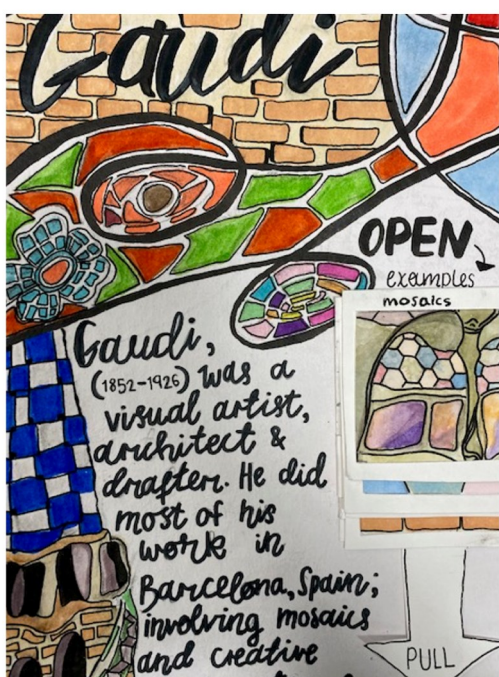 Gaudi
OPEN
examples
mosaics
Gaudi,
(1852-1926) was a
visual artist,
architect &
drafter. He did
most of his
work in
Barcelona, Spain;
involving mosaics
and creative
PULL